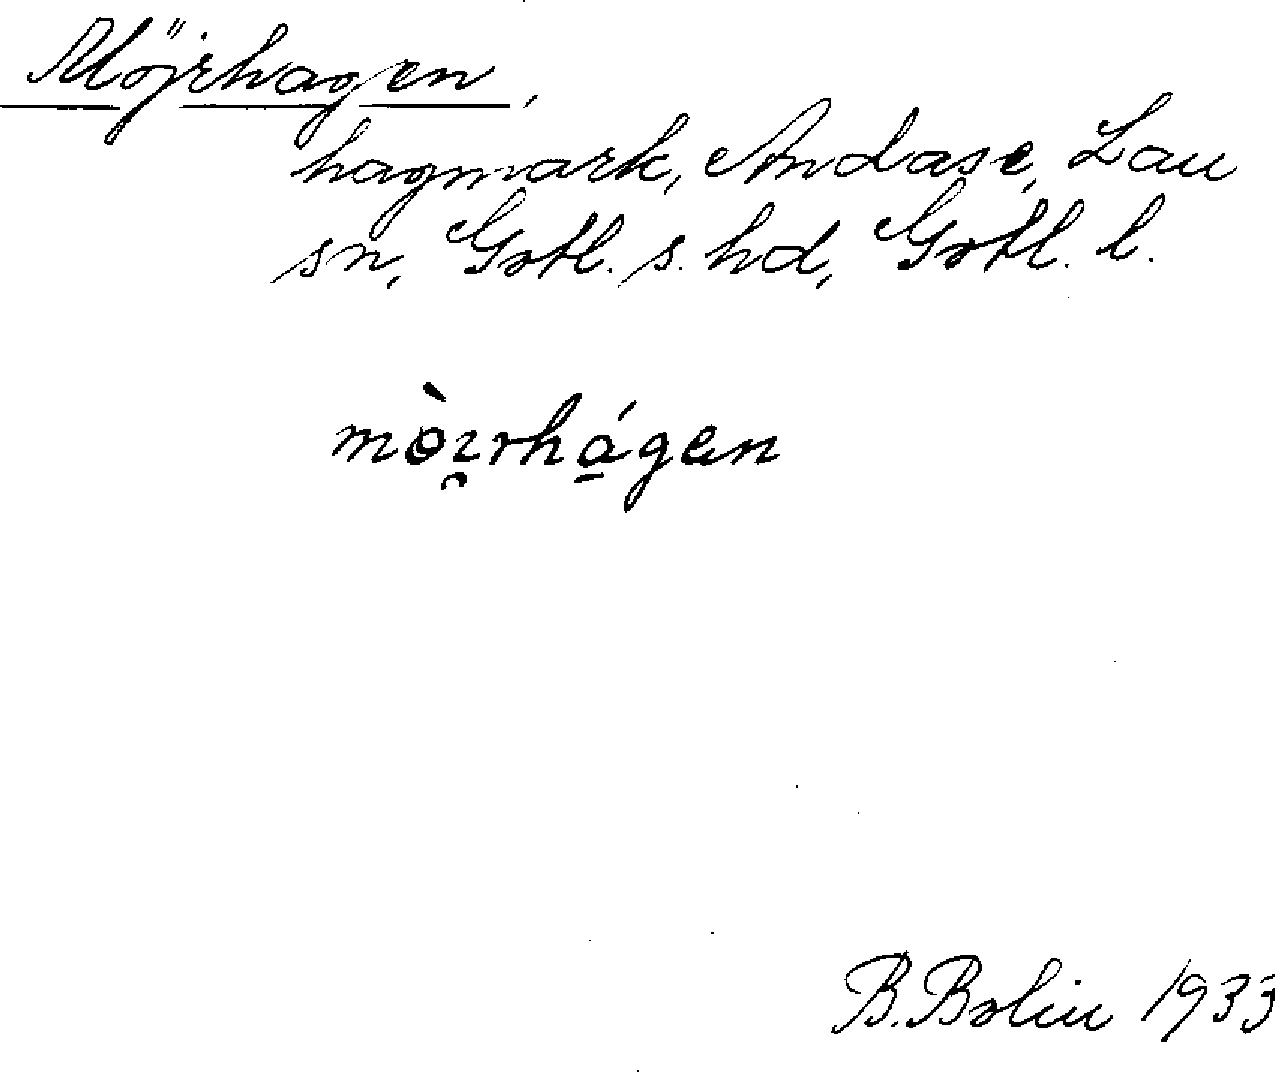 Möjrhagen,
hagmark, Andase, Lau
sn, Gotl. s. hd, Gotl. l.
mòi̯rhá̱gen
B. Bolin 1933